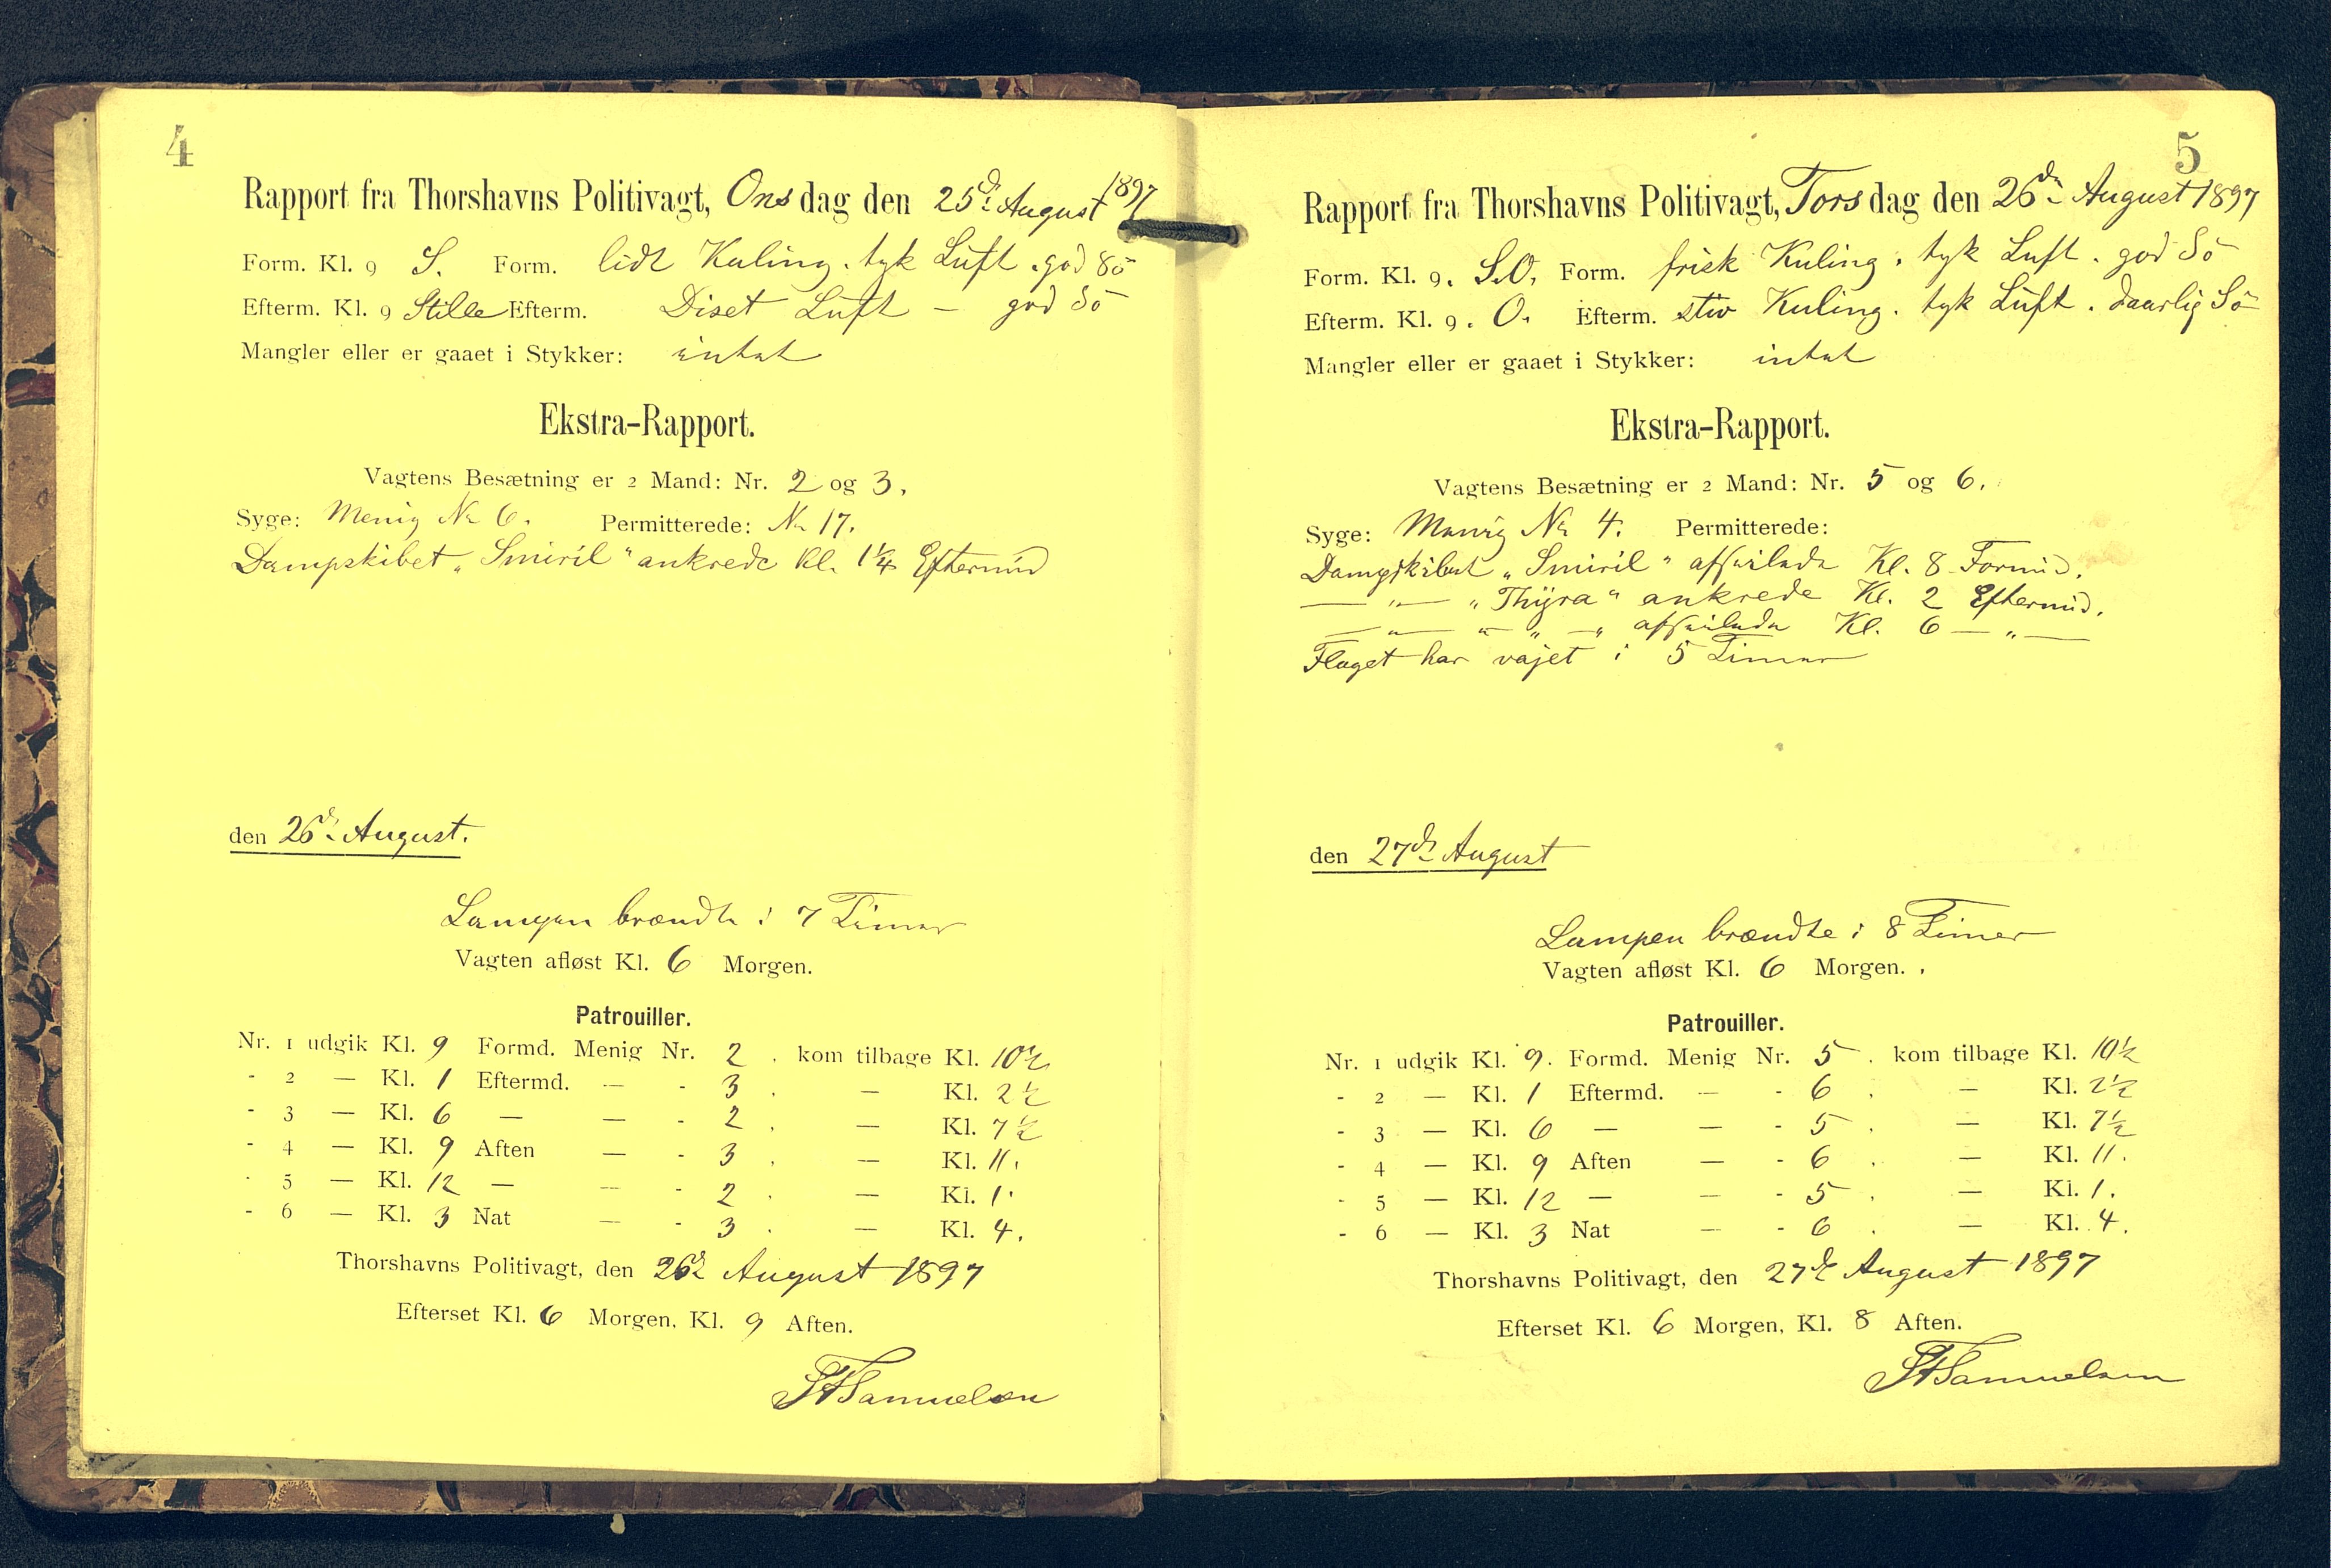 4
Rapport fra Thorshavns Politivagt, Onsdag den 25de August 1897
Form. Kl. 9 S. Form. lidt Kuling. tyk Luft. god Sö
Efterm. Kl. 9 Stille Efterm. Diset Luft — god Sö
Mangler eller er gaaet i Stykker: intet
Ekstra-Rapport.
Vagtens Besætning er 2 Mand: Nr. 2 og 3.
Syge: Menig No 6. Permitterede: No 17.
Dampskibet „Smiril" ankrede Kl. 1¼ Eftermid
den 26de August.
Lampen brændte i 7 Timer
Vagten afløst Kl. 6 Morgen.
Patrouiller.
Nr. 1 udgik Kl. 9 Formd. Menig Nr. 2. kom tilbage Kl. 10½
- 2 — Kl. 1 Eftermd. — - 3. — Kl. 2½
- 3 — Kl. 6 — — - 2. — Kl. 7½
- 4 — Kl. 9 Aften — - 3. — Kl. 11.
- 5 — Kl. 12 — — - 2. — Kl. 1.
- 6 — Kl. 3 Nat — - 3. — Kl. 4.
Thorshavns Politivagt, den 26de August 1897
Efterset Kl. 6 Morgen, Kl. 9 Aften.
Samuelsen
5
Rapport fra Thorshavns Politivagt, Torsdag den 26de August 1897
Form. Kl. 9. S.O. Form. frisk Kuling. tyk Luft. god Sö
Efterm. Kl. 9. O. Efterm. stiv Kuling. tyk Luft. daarlig Sö
Mangler eller er gaaet i Stykker: intet
Ekstra-Rapport.
Vagtens Besætning er 2 Mand: Nr. 5 og 6.
Syge: Menig No 4. Permitterede:
Dampskibet „Smiril" afseilede Kl. 8 Formid.
— " — „Thyra" ankrede Kl. 2 Eftermid.
— " — " " — " afseilede Kl. 6 — " —
Flaget har vajet i 5 Timer
den 27de August
Lampen brændte i 8 Timer
Vagten afløst Kl. 6 Morgen.
Patrouiller.
Nr. 1 udgik Kl. 9. Formd. Menig Nr. 5. kom tilbage Kl. 10½
- 2 — Kl. 1 Eftermd. — - 6. — Kl. 2½
- 3 — Kl. 6 — — - 5. — Kl. 7½
- 4 — Kl. 9 Aften — - 6. — Kl. 11.
- 5 — Kl. 12 — — - 5. — Kl. 1.
- 6 — Kl. 3 Nat — - 6. — Kl. 4.
Thorshavns Politivagt, den 27de August 1897
Efterset Kl. 6 Morgen, Kl. 8 Aften.
Samuelsen